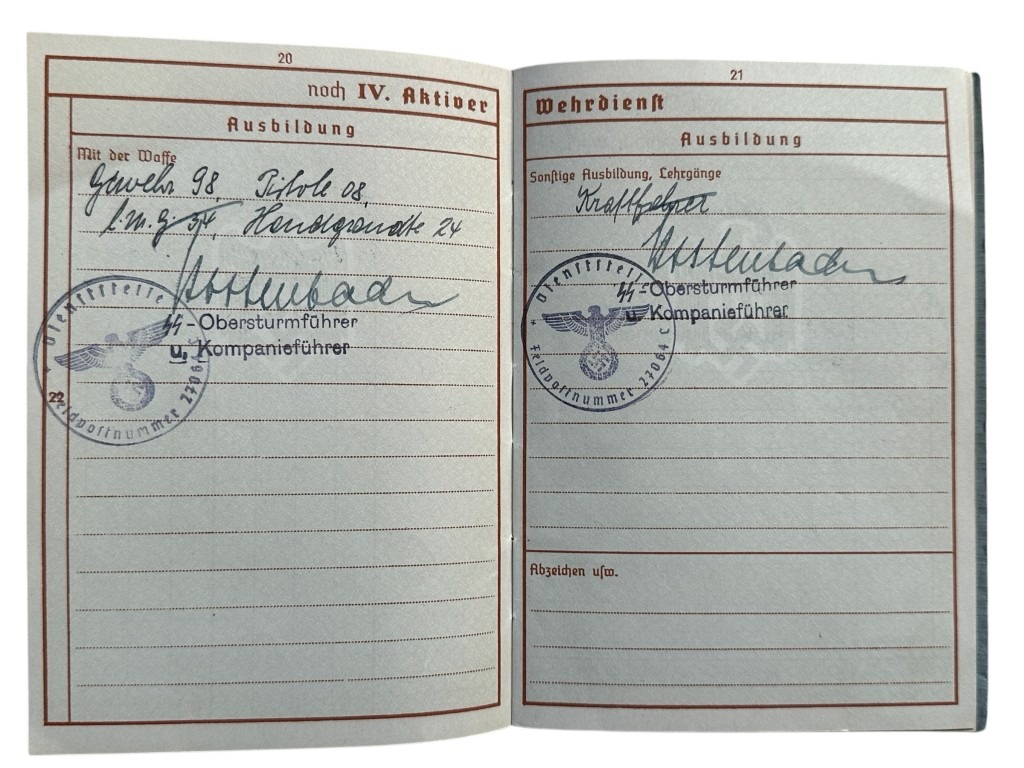 20
noch IV. Aktiver
Ausbildung
Mit der Waffe
Gewehr 98, Pistole 08,
l.m.G 34, Handgranate 24
SS-Obersturmführer
u. Kompanieführer
Dienststelle
* Feldpostnummer 27064 C
22
21
Wehrdienst
Ausbildung
Sonstige Ausbildung, Lehrgänge
Kraftfahrer
SS-Obersturmführer
u. Kompanieführer
Dienststelle
* Feldpostnummer 27064 C
Abzeichen usw.